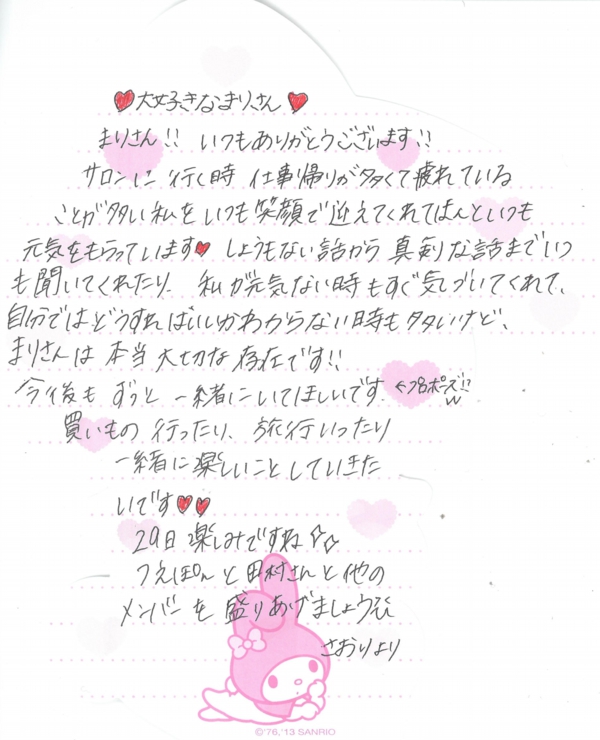 ♥大好きなまりさん♥
まりさん!! いつもありがとうございます!!
サロンに行く時 仕事帰りが多くて疲れている
ことが多い私をいつも笑顔で迎えてくれてほんといつも
元気をもらっています♥ しょうもない話から 真剣な話までいつ
も聞いてくれたり、私が元気ない時もすぐ気づいてくれて、
自分ではどうすればいいかわからない時も多いけど、
まりさんは 本当 大切な存在です!!
今後も ずっと 一緒にいてほしいです ←プロポーズ!?ww
買いもの 行ったり、旅行いったり
一緒に楽しいことしていきた
いです♥♥
29日 楽しみですね
つえぽんと田村さんと他の
メンバーを 盛りあげましょう
さおりより
©'76,'13 SANRIO